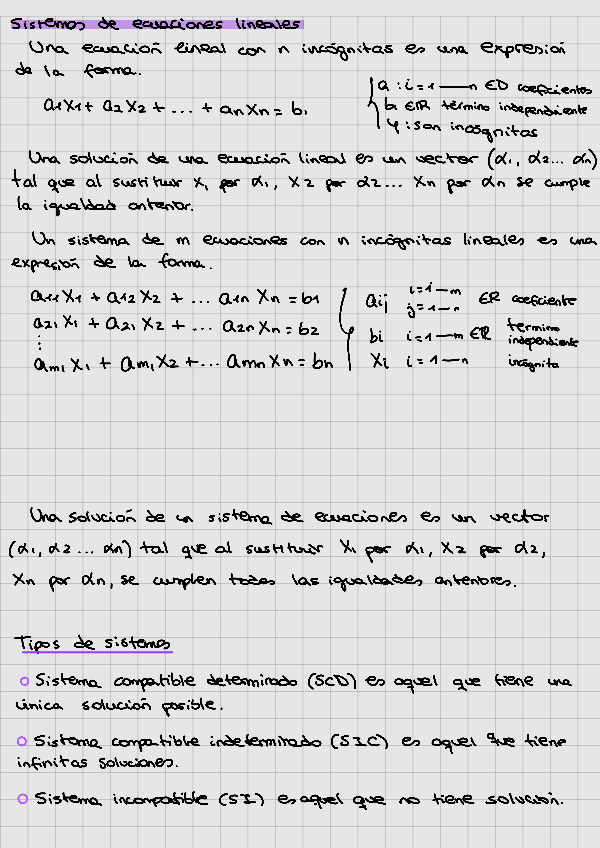 Sistemas de ecuaciones lineales
Una ecuación lineal con n incógnitas es una expresión
de la forma.
a1X1 + a2X2 + ... + anXn = b1
a : i = 1 — n ∈ℝ coeficientes
b ∈ℝ término independiente
y : son incógnitas
Una solución de una ecuación lineal es un vector (α1, α2... αn)
tal que al sustituir X1 por α1, X2 por α2... Xn por αn se cumple
la igualdad anterior.
Un sistema de m ecuaciones con n incógnitas lineales es una
expresión de la forma.
a11X1 + a12X2 + ... a1n Xn = b1
a21X1 + a21X2 + ... a2nXn = b2
⋮
am1X1 + am1X2 + ... amnXn = bn
aij i=1—m j=1—n ∈ℝ coeficiente
bi i=1—m ∈ℝ término independiente
Xi i=1—n incógnita
Una solución de un sistema de ecuaciones es un vector
(α1, α2 ... αn) tal que al sustituir X1 por α1, X2 por α2,
Xn por αn, se cumplen todas las igualdades anteriores.
Tipos de sistemas
Sistema compatible determinado (SCD) es aquel que tiene una
única solución posible.
Sistema compatible indeterminado (SIC) es aquel que tiene
infinitas soluciones.
Sistema incompatible (SI) es aquel que no tiene solución.